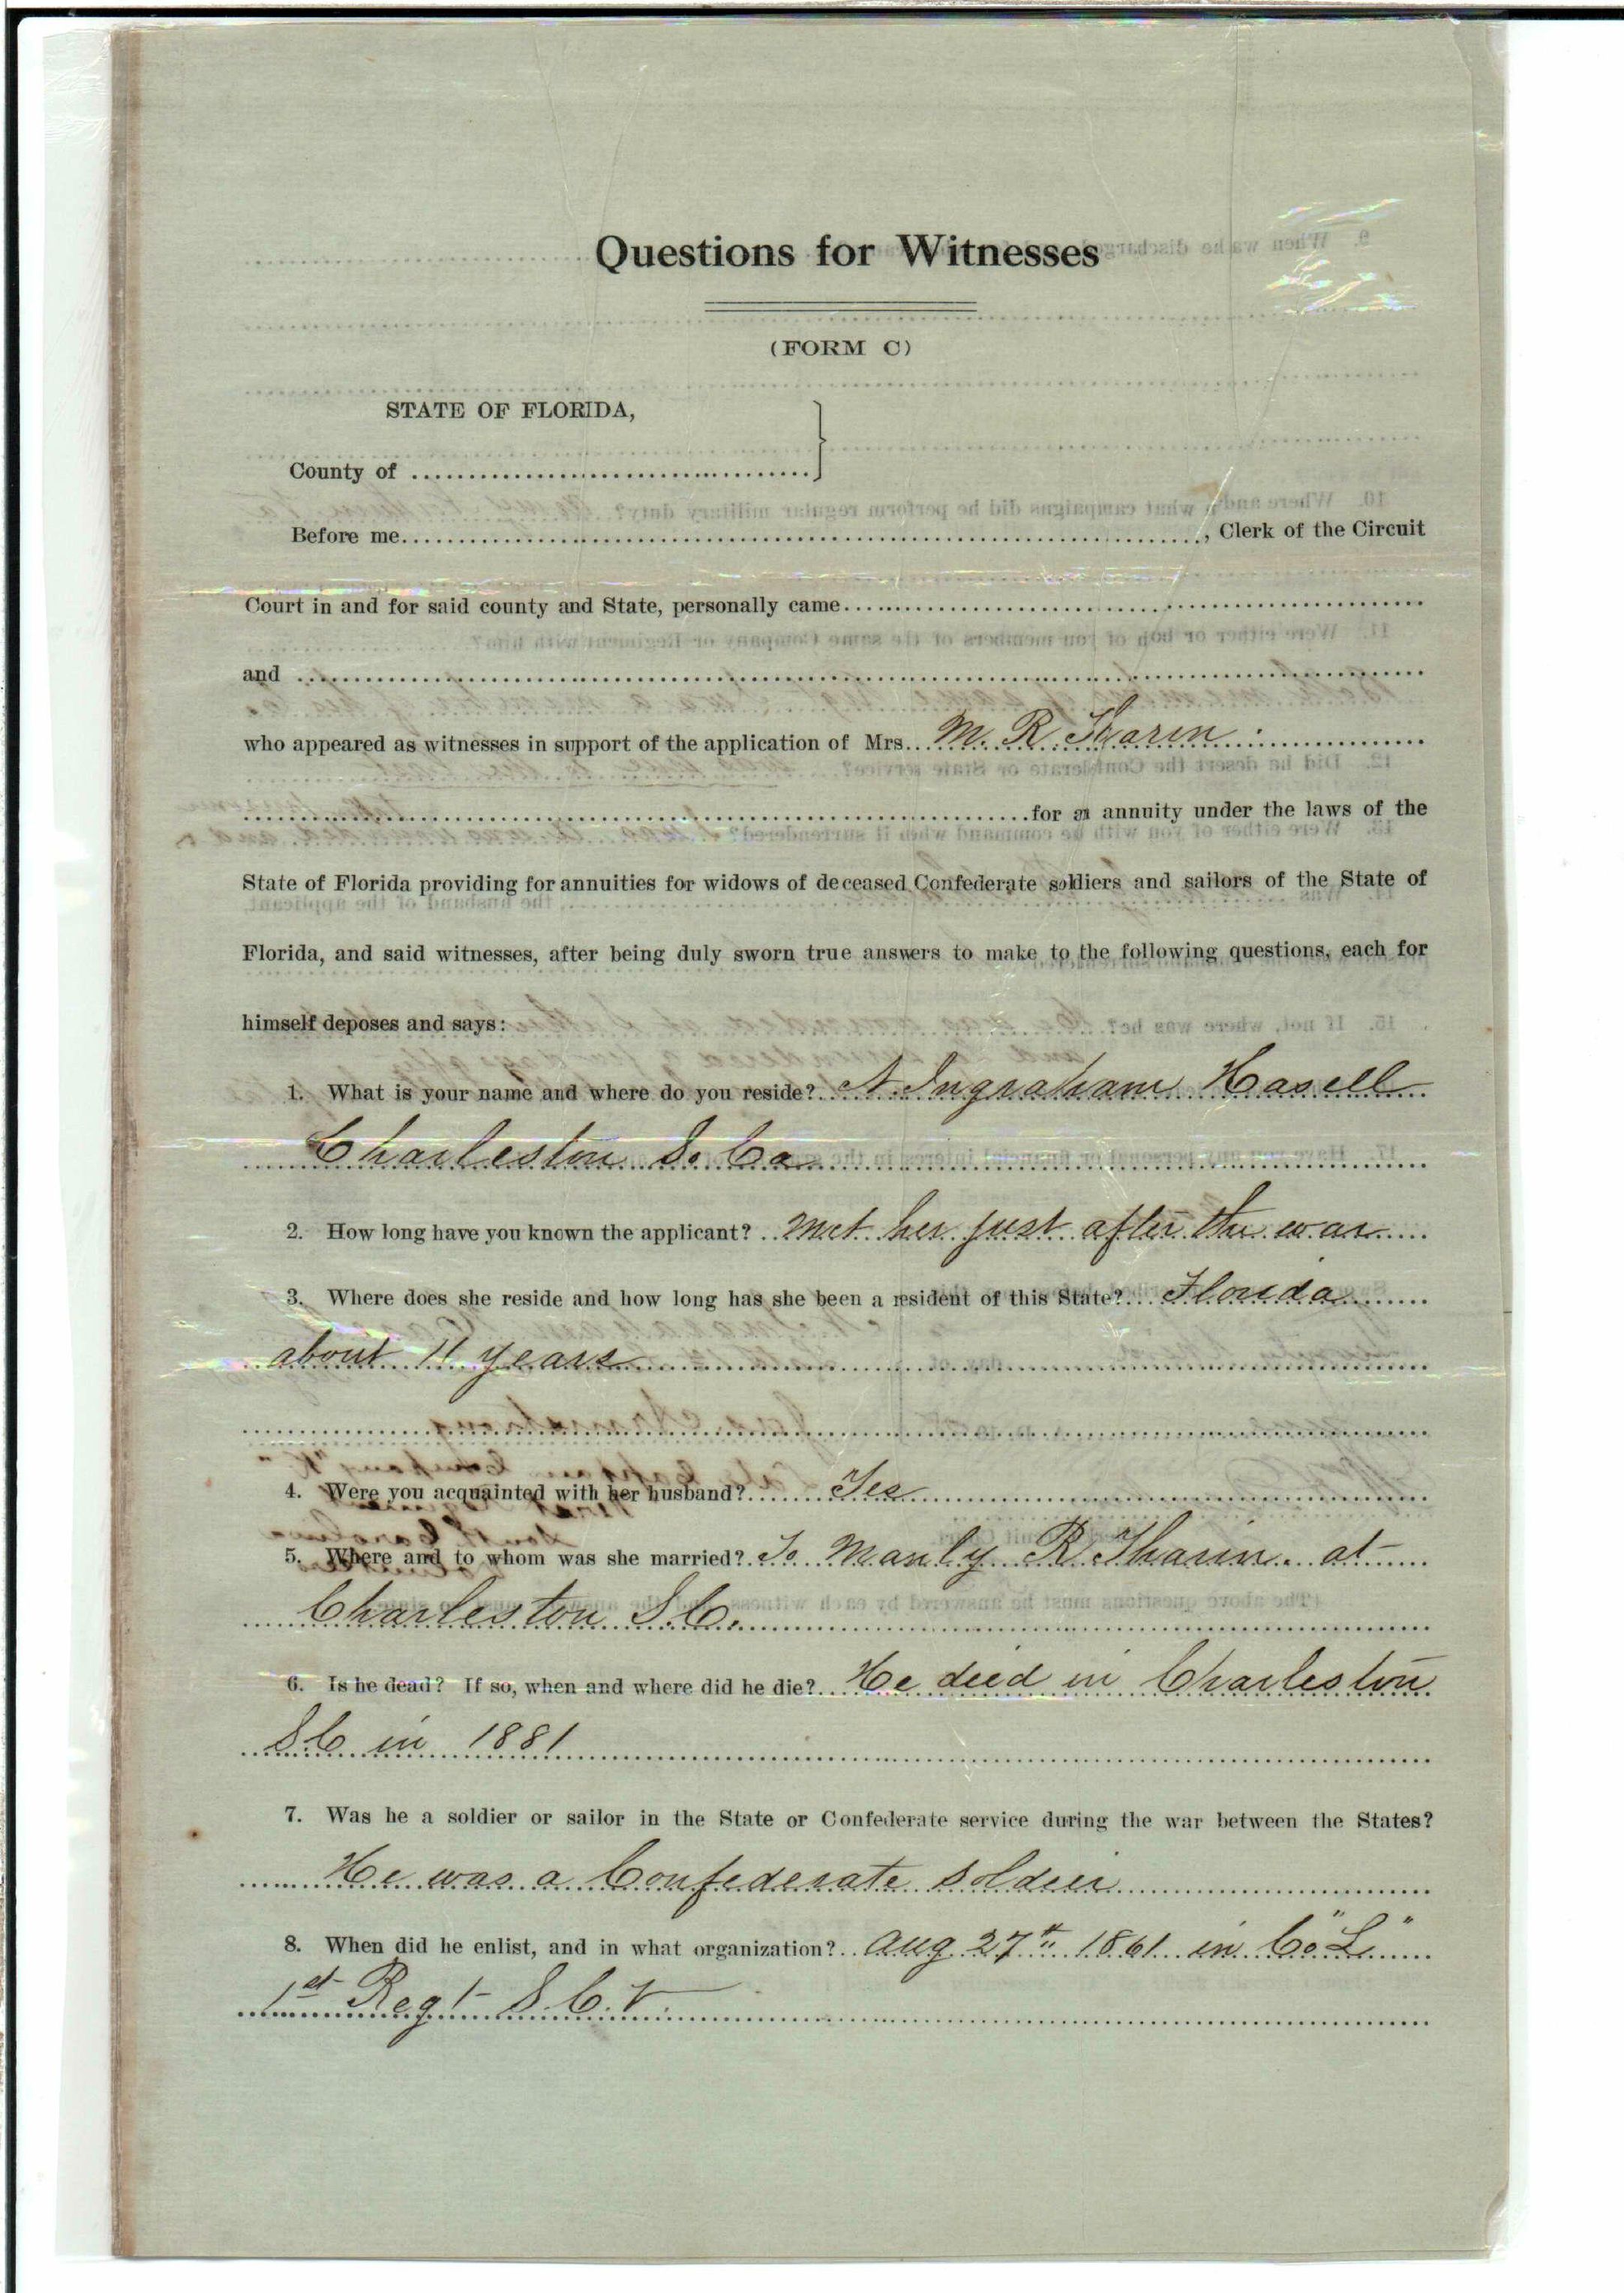 Questions for Witnesses
(FORM C)
STATE OF FLORIDA,
County of
Before me, Clerk of the Circuit
Court in and for said county and State, personally came
and
who appeared as witnesses in support of the application of Mrs. M. R. Tharin
for an annuity under the laws of the
State of Florida providing for annuities for widows of deceased Confederate soldiers and sailors of the State of
Florida, and said witnesses, after being duly sworn true answers to make to the following questions, each for
himself deposes and says:
1. What is your name and where do you reside? N. Ingraham Hasell
Charleston So. Ca
2. How long have you known the applicant? Met her just after the war
3. Where does she reside and how long has she been a resident of this State? Florida
about 11 years
4. Were you acquainted with her husband? Yes
5. Where and to whom was she married? To Manly R Tharin at
Charleston S.C.
6. Is he dead? If so, when and where did he die? He died in Charleston
SC in 1881
7. Was he a soldier or sailor in the State or Confederate service during the war between the States?
He was a Confederate soldier
8. When did he enlist, and in what organization? Aug 27th 1861 in Co "L"
1st Regt S.C.V.